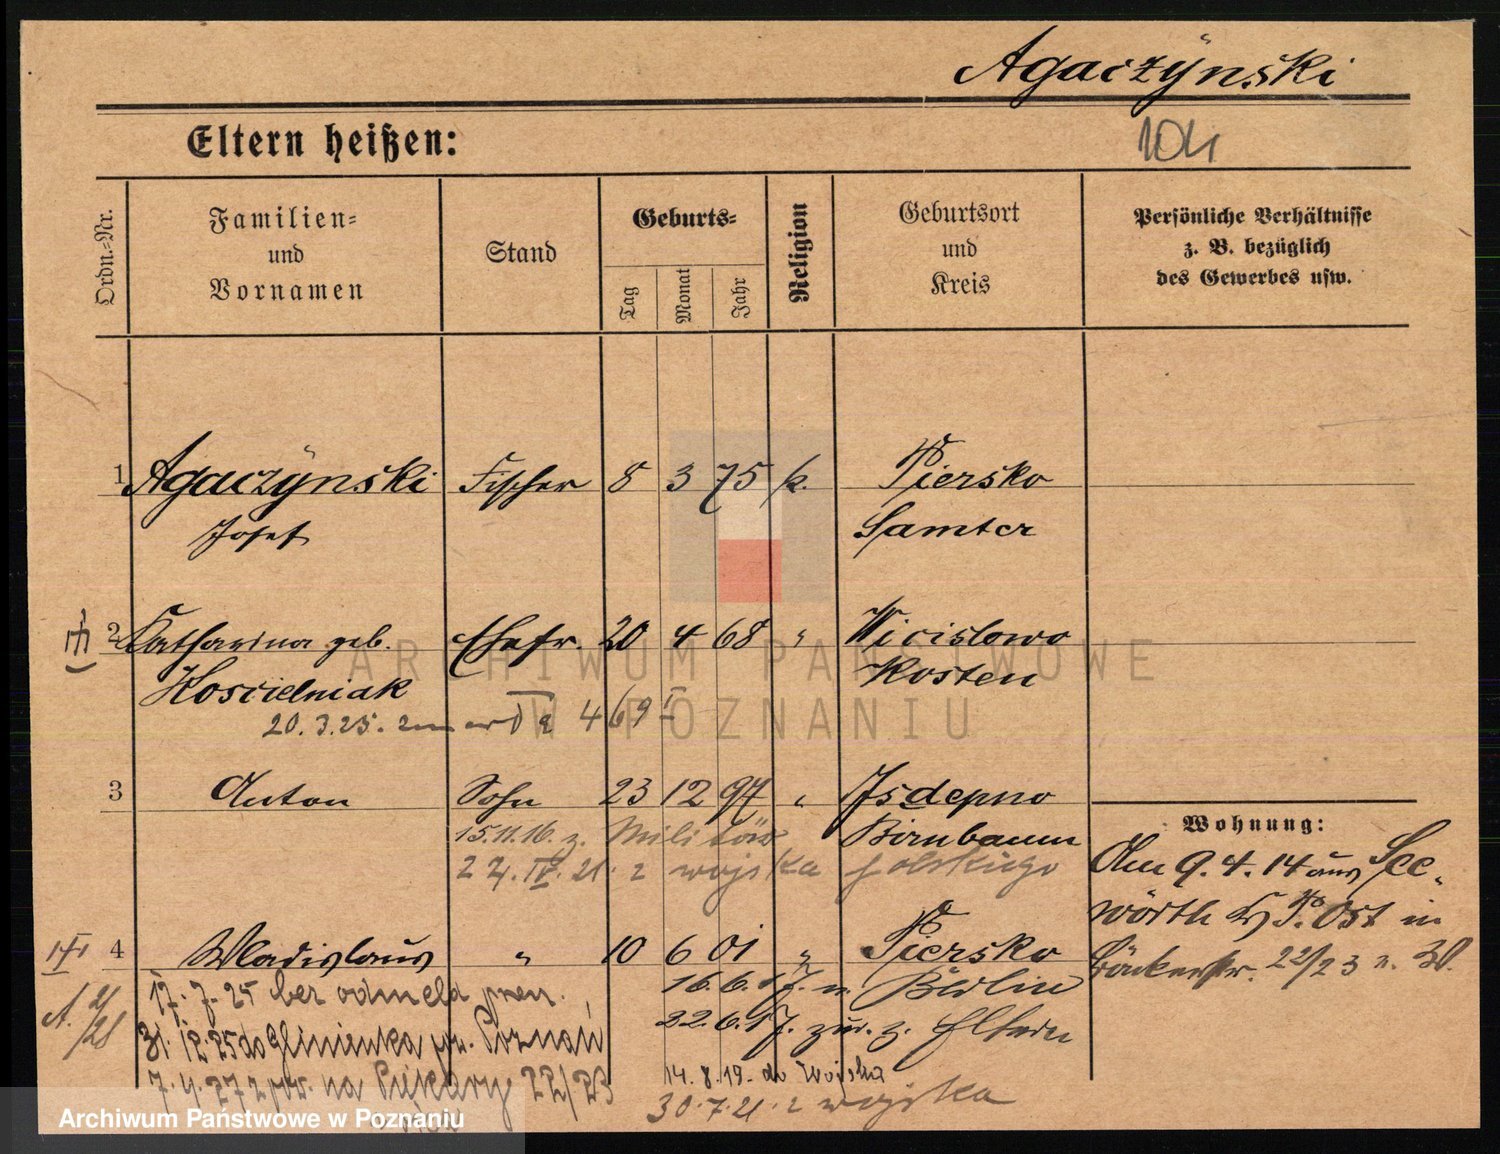 Agaczÿnski
Eltern heißen:
104
Ordn.-Nr.
Familien-
und
Vornamen
Stand
Geburts-
Tag
Monat
Jahr
Religion
Geburtsort
und
Kreis
Persönliche Verhältnisse
z. B. bezüglich
des Gewerbes usw.
1 Agaczÿnski Fischer 8 3 75 k. Piersko
Josef Samter
2 Katharina geb. Ehefr. 20 4 68 " Wicislowo
Koscielniak Kosten
20.3.25. 4 69
3 Anton Sohn 23 12 97 " Isdepno
15.11.16. z. Militär Birnbaum
27.IV.21. z wojska polskiego
Wohnung:
Am 9.4.14 aus See-
wörth Kr P. Ost in
Bäckerstr. 22/23 b. 30.
4 Wladislaus " 10 6 01 " Piersko
16.6.17. n. Berlin
22.6.17. zur. z. Eltern
17.7.25 bez odmeld.
31.12.25 do Glinienka pw. Poznań
14.8.19. do Wojska
7.4.27 z pow. na Piekary 22/23
30.7.21. z wojska
A. 2/28
ARCHIWUM PAŃSTWOWE
W POZNANIU
Archiwum Państwowe w Poznaniu